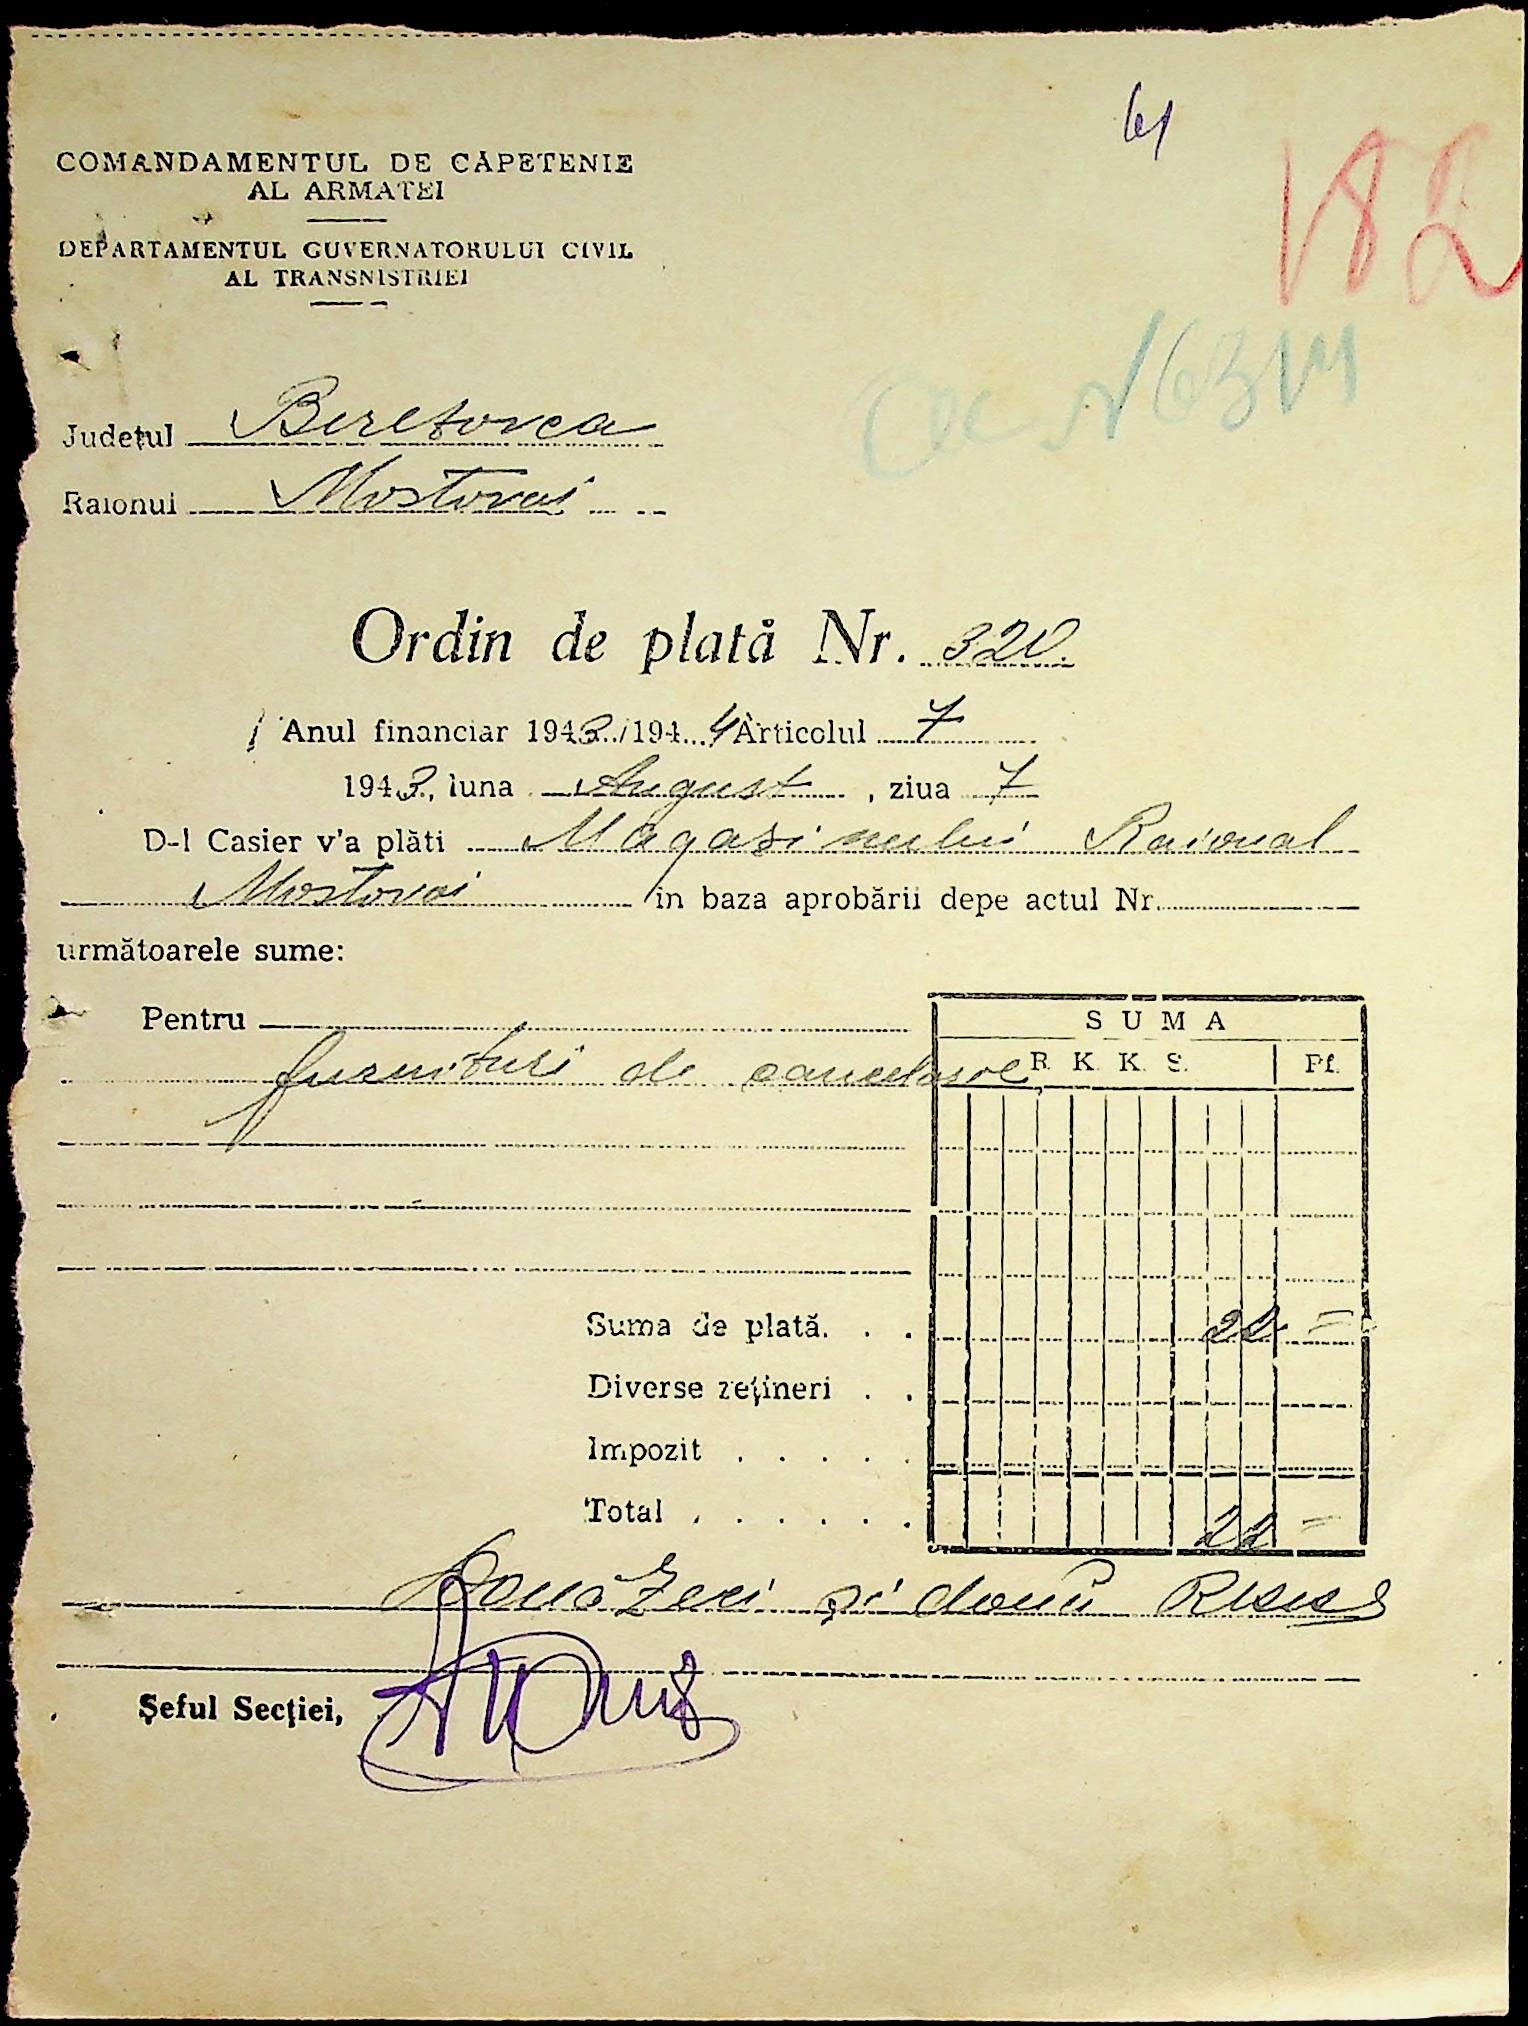 61
182
COMANDAMENTUL DE CĂPETENIE
AL ARMATEI
DEPARTAMENTUL GUVERNATORULUI CIVIL
AL TRANSNISTRIEI
Județul Berezovca
Raionul Mostovoi
Ordin de plată Nr. 320.
Anul financiar 1943/1944 Articolul 7
1943, luna August, ziua 7
D-l Casier v'a plăti Magazinului Raional
Mostovoi in baza aprobării depe actul Nr.
următoarele sume:
Pentru
furnituri de cancelarie
SUMA
R. K. K. S. Pf.
Suma de plată. . . 22 =
Diverse rețineri . .
Impozit . . . . .
Total . . . . . . 22 =
Două zeci și două RKKS
Șeful Secției,